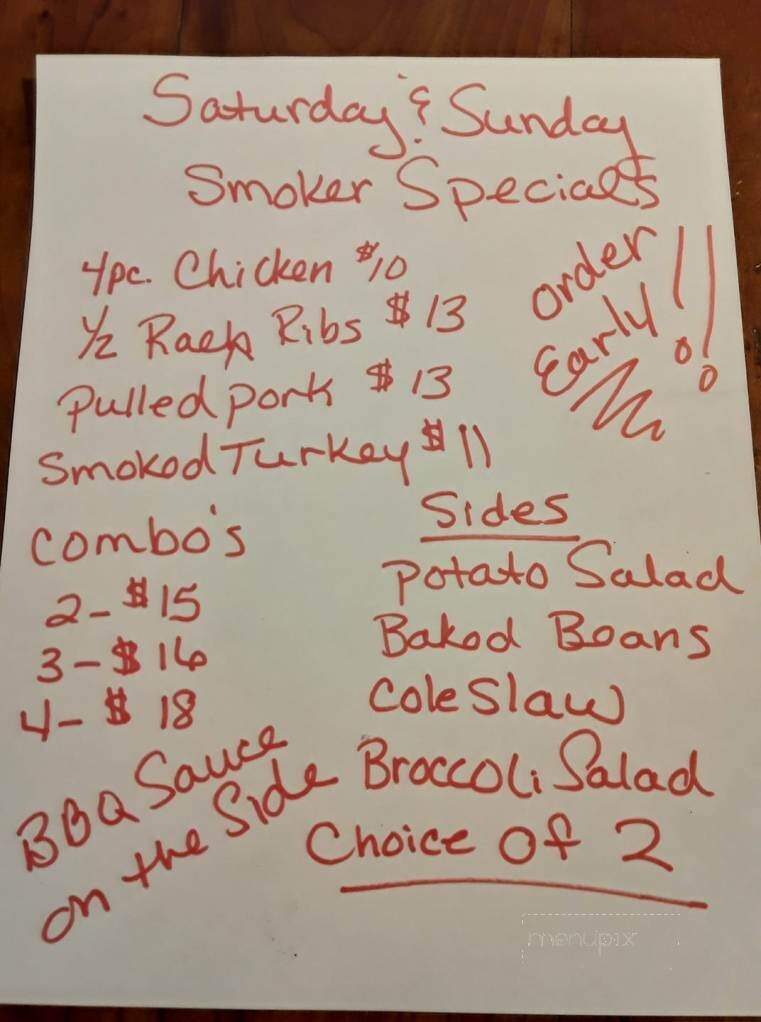 Saturday & Sunday
Smoker Specials
4pc. Chicken $10
1/2 Rack Ribs $13
Pulled pork $13
Smoked Turkey $11
Order
Early!!
Combo's
2- $15
3- $16
4- $18
Sides
Potato Salad
Baked Beans
Cole Slaw
Broccoli Salad
Choice of 2
BBQ Sauce
on the Side
menupix